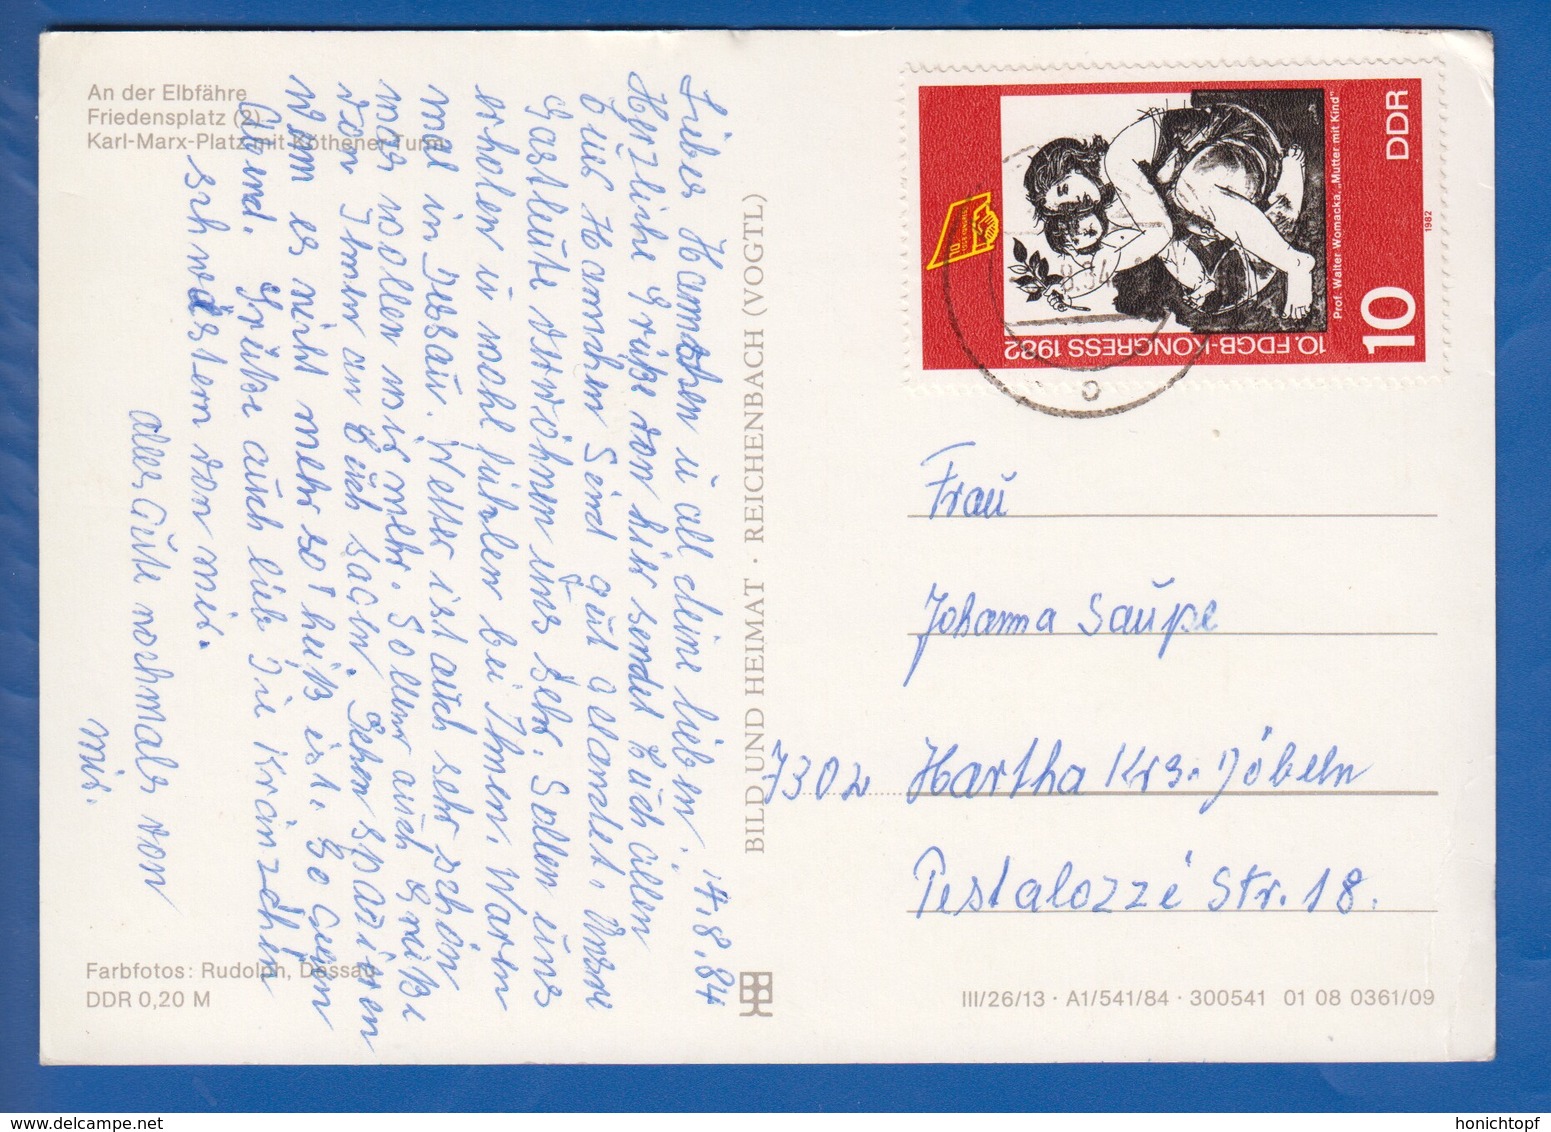 An der Elbfähre
Friedensplatz (2)
Karl-Marx-Platz mit Köthener Turm
14.8.84
Liebes Hannchen u all deine lieben.
Herzliche Grüße von hier sendet Euch allen
Eure Hannchen Sind gut gelandet. Unsere
Gastleute verwöhnen uns sehr. Sollen uns
erholen u wohl fühlen bei Ihnen. Waren
mal in Dessau. Wetter ist auch sehr schön
was wollen wir mehr. Sollen auch Grüße
von Ihnen an Euch sagen. Gehen spazieren
wenn es nicht mehr so heiß ist. So Gegen
Abend. Grüße auch lieb Die Kränzchen
schwestern von mir.
alles Gute nochmals von
mir.
Farbfotos: Rudolph, Dessau
DDR 0,20 M
BILD UND HEIMAT · REICHENBACH (VOGTL)
10. FDGB-KONGRESS 1982
10
DDR
Prof. Walter Womacka, „Mutter mit Kind"
1982
Frau
Johanna Saupe
7302 Hartha Krs. Döbeln
Pestalozzi Str. 18.
III/26/13 · A1/541/84 · 300541 01 08 0361/09
honichtopf
delcampe.net